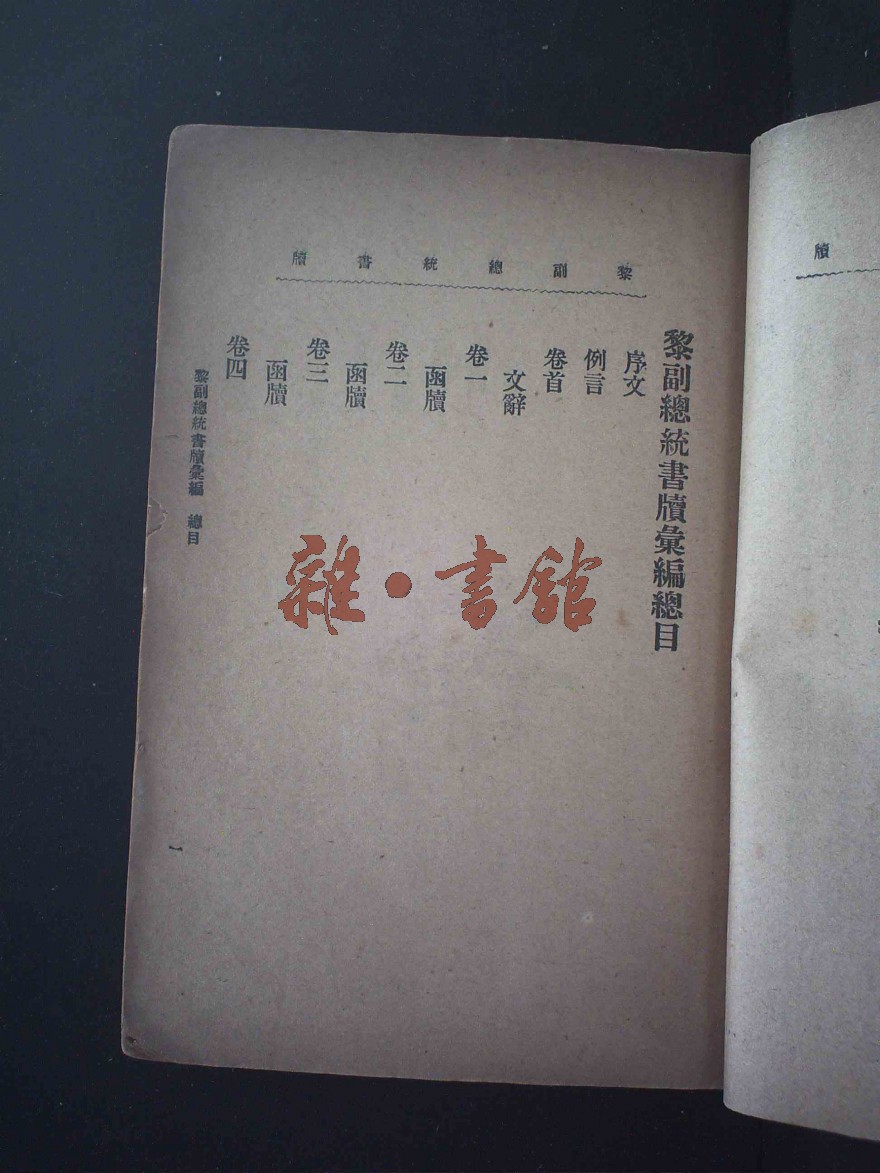 黎副總統書牘
黎副總統書牘彙編總目
序文
例言
卷首
文辭
卷一
函牘
卷二
函牘
卷三
函牘
卷四
黎副總統書牘彙編 總目
一
雜·書館
牘